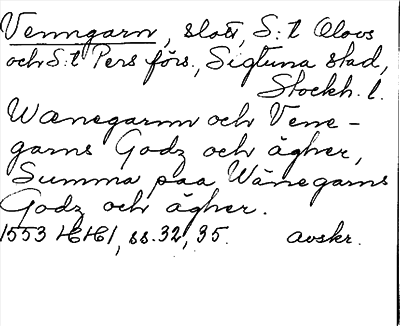 Venngarn, slott, S:t Olovs
och S:t Pers förs., Sigtuna stad,
Stockh. l.
Wænegarnn och Vene-
garns Godz och ägher,
Summa paa Wänegarns
Godz och ägher.
1553 HH1, ss. 32, 35. avskr.